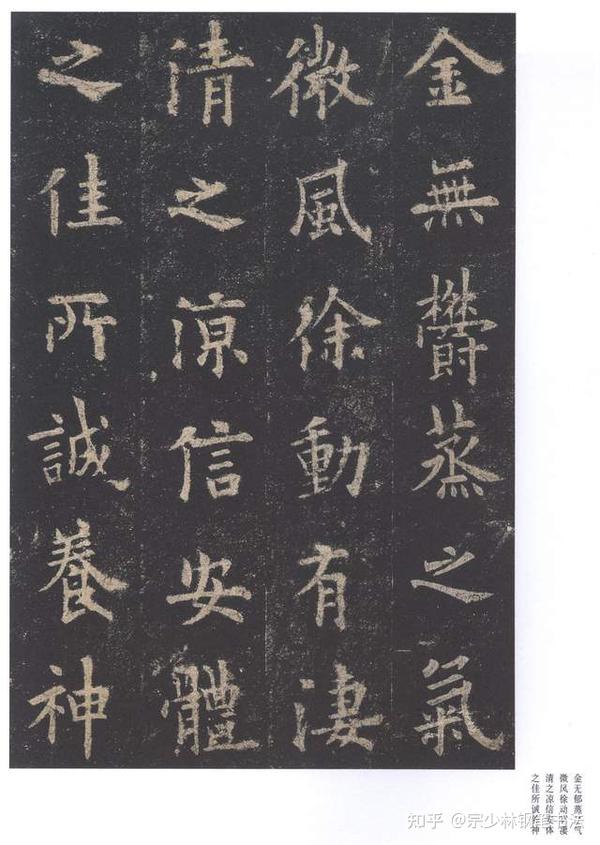 金無欝蒸之氣
微風徐動有淒
清之涼信安體
之佳所誠養神
金无郁蒸之气
微风徐动有凄
清之凉信安体
之佳所诚养神
知乎 @宗少林钢笔书法